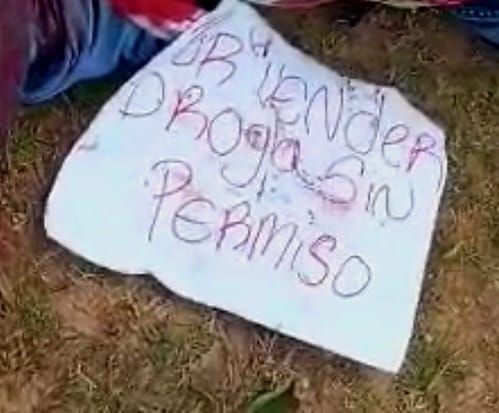 POR VENDER
DROGA SIN
PERMISO